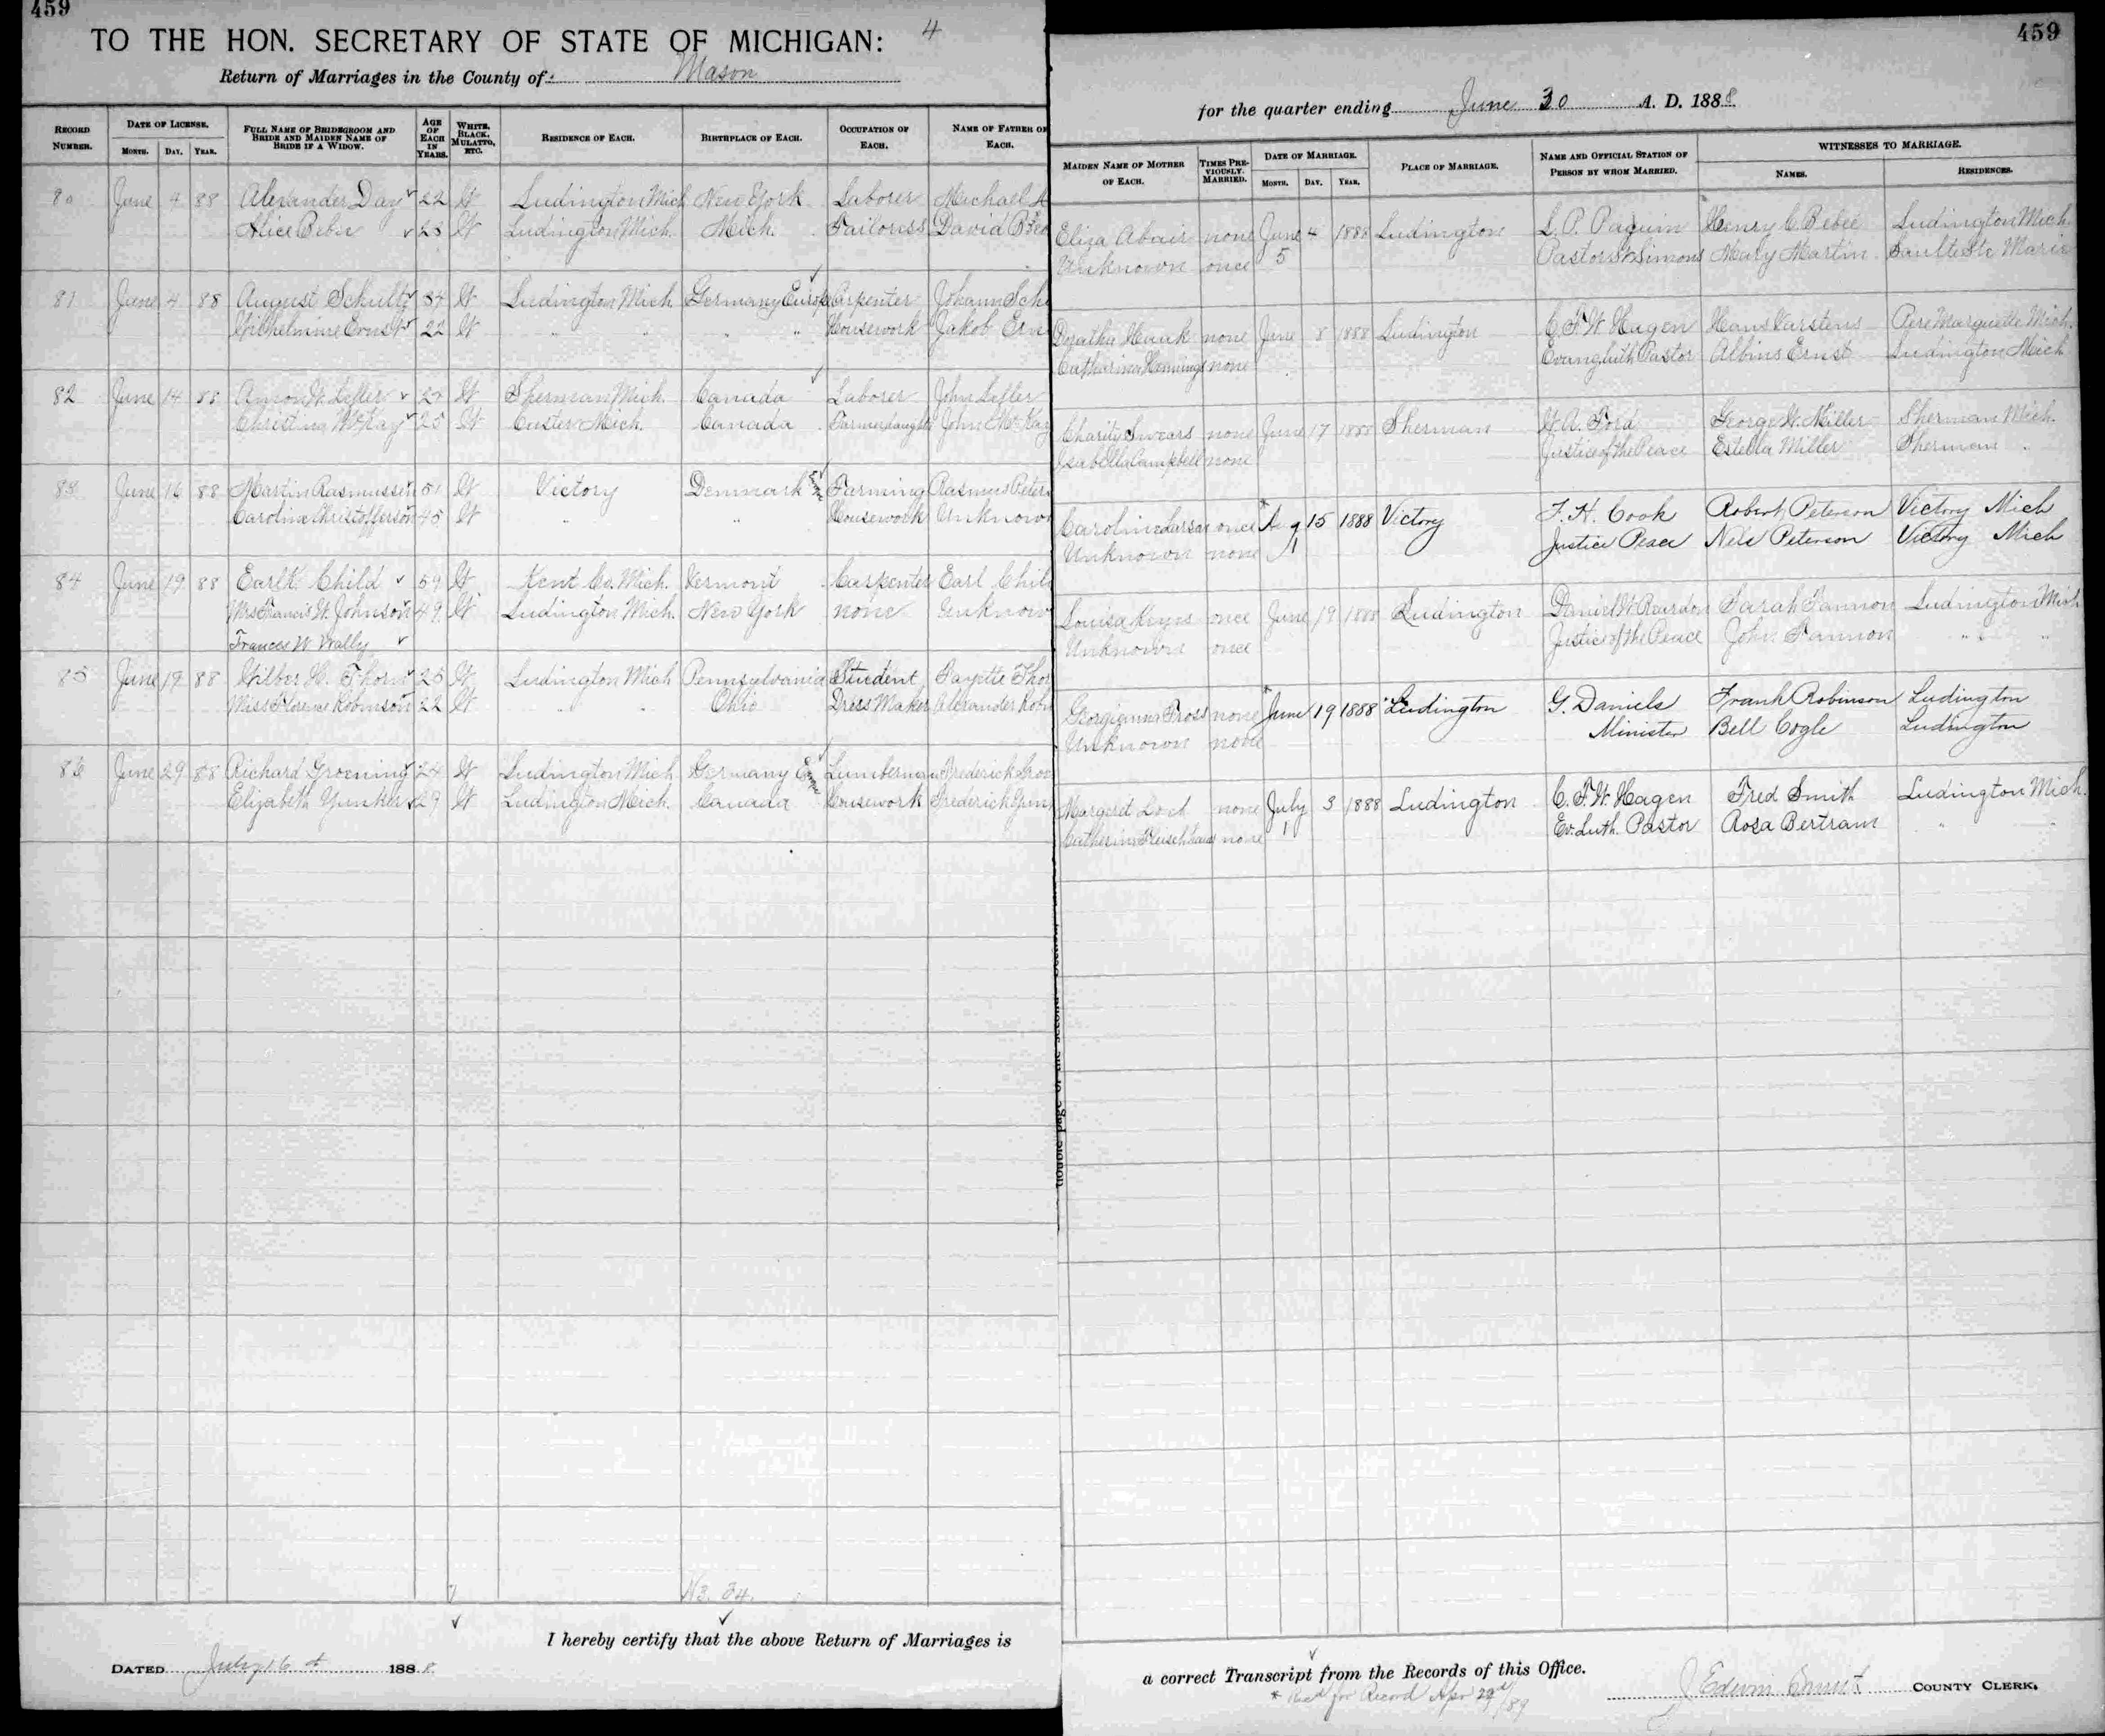 459
TO THE HON. SECRETARY OF STATE OF MICHIGAN: 4
Return of Marriages in the County of: Mason
RECORD NUMBER. DATE OF LICENSE. MONTH. DAY. YEAR. FULL NAME OF BRIDEGROOM AND BRIDE AND MAIDEN NAME OF BRIDE IF A WIDOW. AGE OF EACH IN YEARS. WHITE, BLACK, MULATTO, ETC. RESIDENCE OF EACH. BIRTHPLACE OF EACH. OCCUPATION OF EACH. NAME OF FATHER OF EACH.
80 June 4 88 Alexander Day 22 W Ludington Mich New York Laborer Michael A
Alice 23 W Ludington Mich. Mich. Tailoress David
81 June 4 88 August Schultz 34 W Ludington Mich Germany Europe Carpenter Johann Sch
Wilhelmine Ernst 22 W " " " " Housework Jakob Ern
82 June 14 88 Anson W. Lefler W Sherman Mich. Canada Laborer John Lefler
Christina McKay 25 W Custer Mich. Canada Farmer daughter John McKay
83 June 16 88 Martin Rasmussen 51 W Victory Denmark Europe Farming Rasmus Peters
Caroline Christofferson 45 W " " Housework Unknown
84 June 19 88 Earl Child 59 W Kent Co. Mich. Vermont Carpenter Earl Child
Mrs Francis W. Johnson 49 W Ludington Mich. New York none Unknow
Frances W Wally
85 June 19 88 Wilber H. Thorn 25 W Ludington Mich Pennsylvania Student Fayette Thor
Miss Florence Robinson 22 W " " Ohio Dress Maker Alexander Robi
86 June 29 88 Richard Groening 24 W Ludington Mich Germany Europe Lumberman Frederick Groe
Elizabeth Yunker 29 W Ludington Mich. Canada Housework Frederick Yun
N3. 34.
I hereby certify that the above Return of Marriages is
DATED July 16 188 8
459
for the quarter ending June 30 A. D. 188 8
MAIDEN NAME OF MOTHER OF EACH. TIMES PREVIOUSLY MARRIED. DATE OF MARRIAGE. MONTH. DAY. YEAR. PLACE OF MARRIAGE. NAME AND OFFICIAL STATION OF PERSON BY WHOM MARRIED. WITNESSES TO MARRIAGE. NAMES. RESIDENCES.
Eliza Abair none June 4 1888 Ludington L. P. Paquin Henry C Bebee Ludington Mich
Unknown once 5 Pastor St Simons Mary Martin Saulte Ste Marie
Doratha Hauk none June 8 1888 Ludington C. F. W. Hagen Hans Karstens Pere Marquette Mich.
Catharina Hennings none Evang. Luth Pastor Albins Ernst Ludington Mich
Charity Swears none June 17 1888 Sherman W. A. Ford George W. Miller Sherman Mich.
Isabella Campbell none Justice of the Peace Estella Miller Sherman "
Caroline Larsen once * Aug 15 1888 Victory F. H. Cook Robert Peterson Victory Mich
Unknown none Justice Peace Nels Peterson Victory Mich
Louisa Keyes once June 19 1888 Ludington Daniel W. Reardon Sarah Fannon Ludington Mich
Unknown once Justice of the Peace John Fannon " "
Georgianna Pross none * June 19 1888 Ludington G. Daniels Frank Robinson Ludington
Unknown none Minister Bell Cogle Ludington
Margaret none July 3 1888 Ludington C. F. W. Hagen Fred Smith Ludington Mich.
Catherine none Ev. Luth. Pastor Rosa Bertram " "
a correct Transcript from the Records of this Office.
* Recd for Record Apr 29d/89
J Edwin Smith COUNTY CLERK.